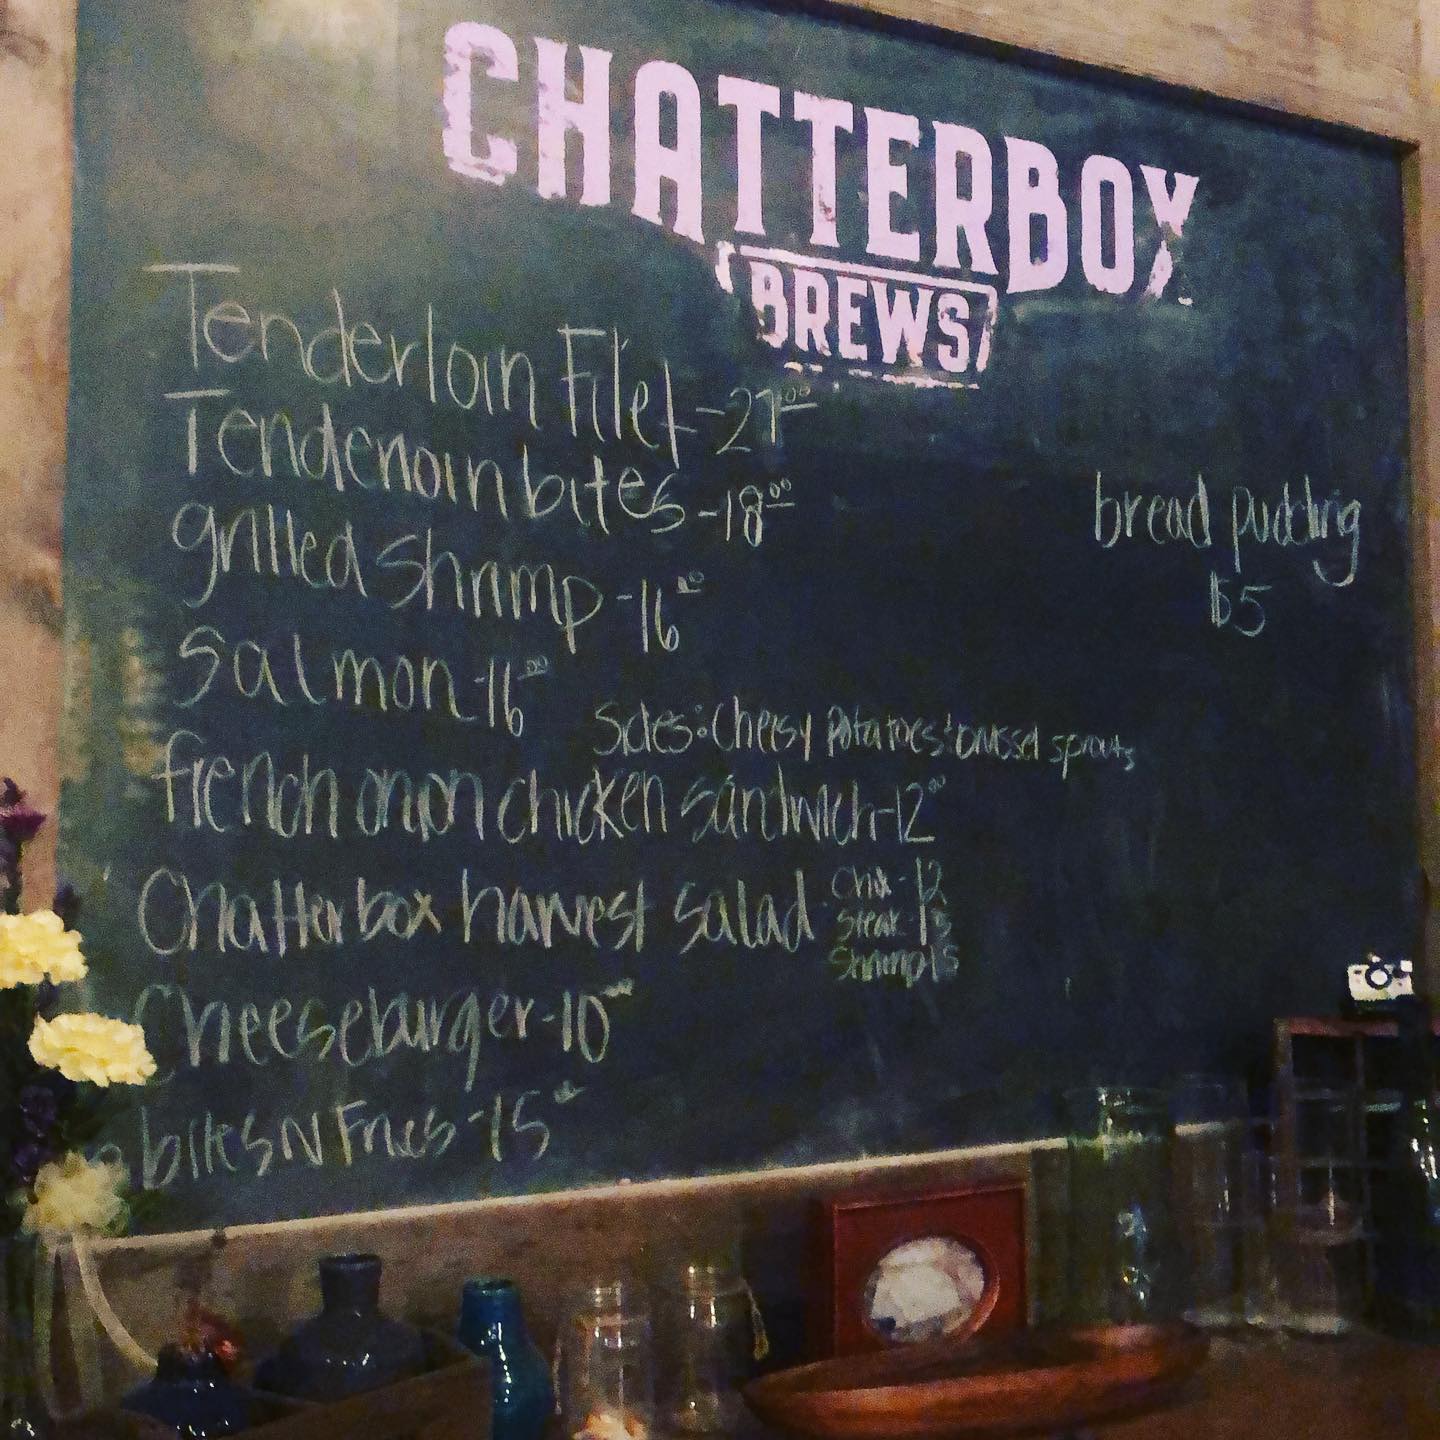 CHATTERBOX
BREWS
Tenderloin Filet - 27.00
Tenderloin bites - 18.00
grilled shrimp - 16.00
Salmon - 16.00
Sides: Cheesy Potatoes & brussel sprouts
french onion chicken sandwich - 12.00
Chatterbox harvest salad
Chix - 12
Steak - 15
Shrimp - 15
Cheeseburger - 10.00
bites N Fries - 15.00
bread pudding
$5